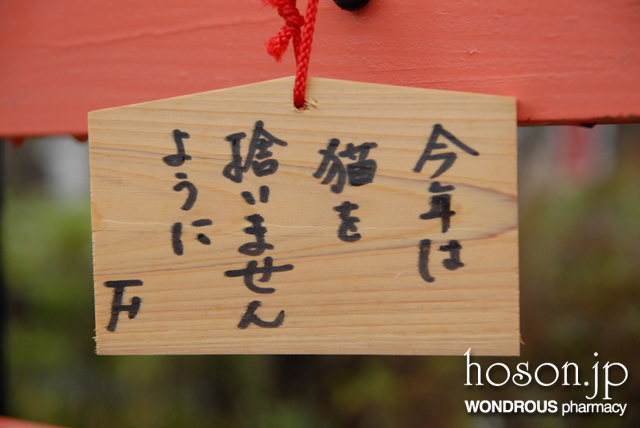 今年は
猫を
拾いません
ように
hoson.jp
WONDROUS pharmacy